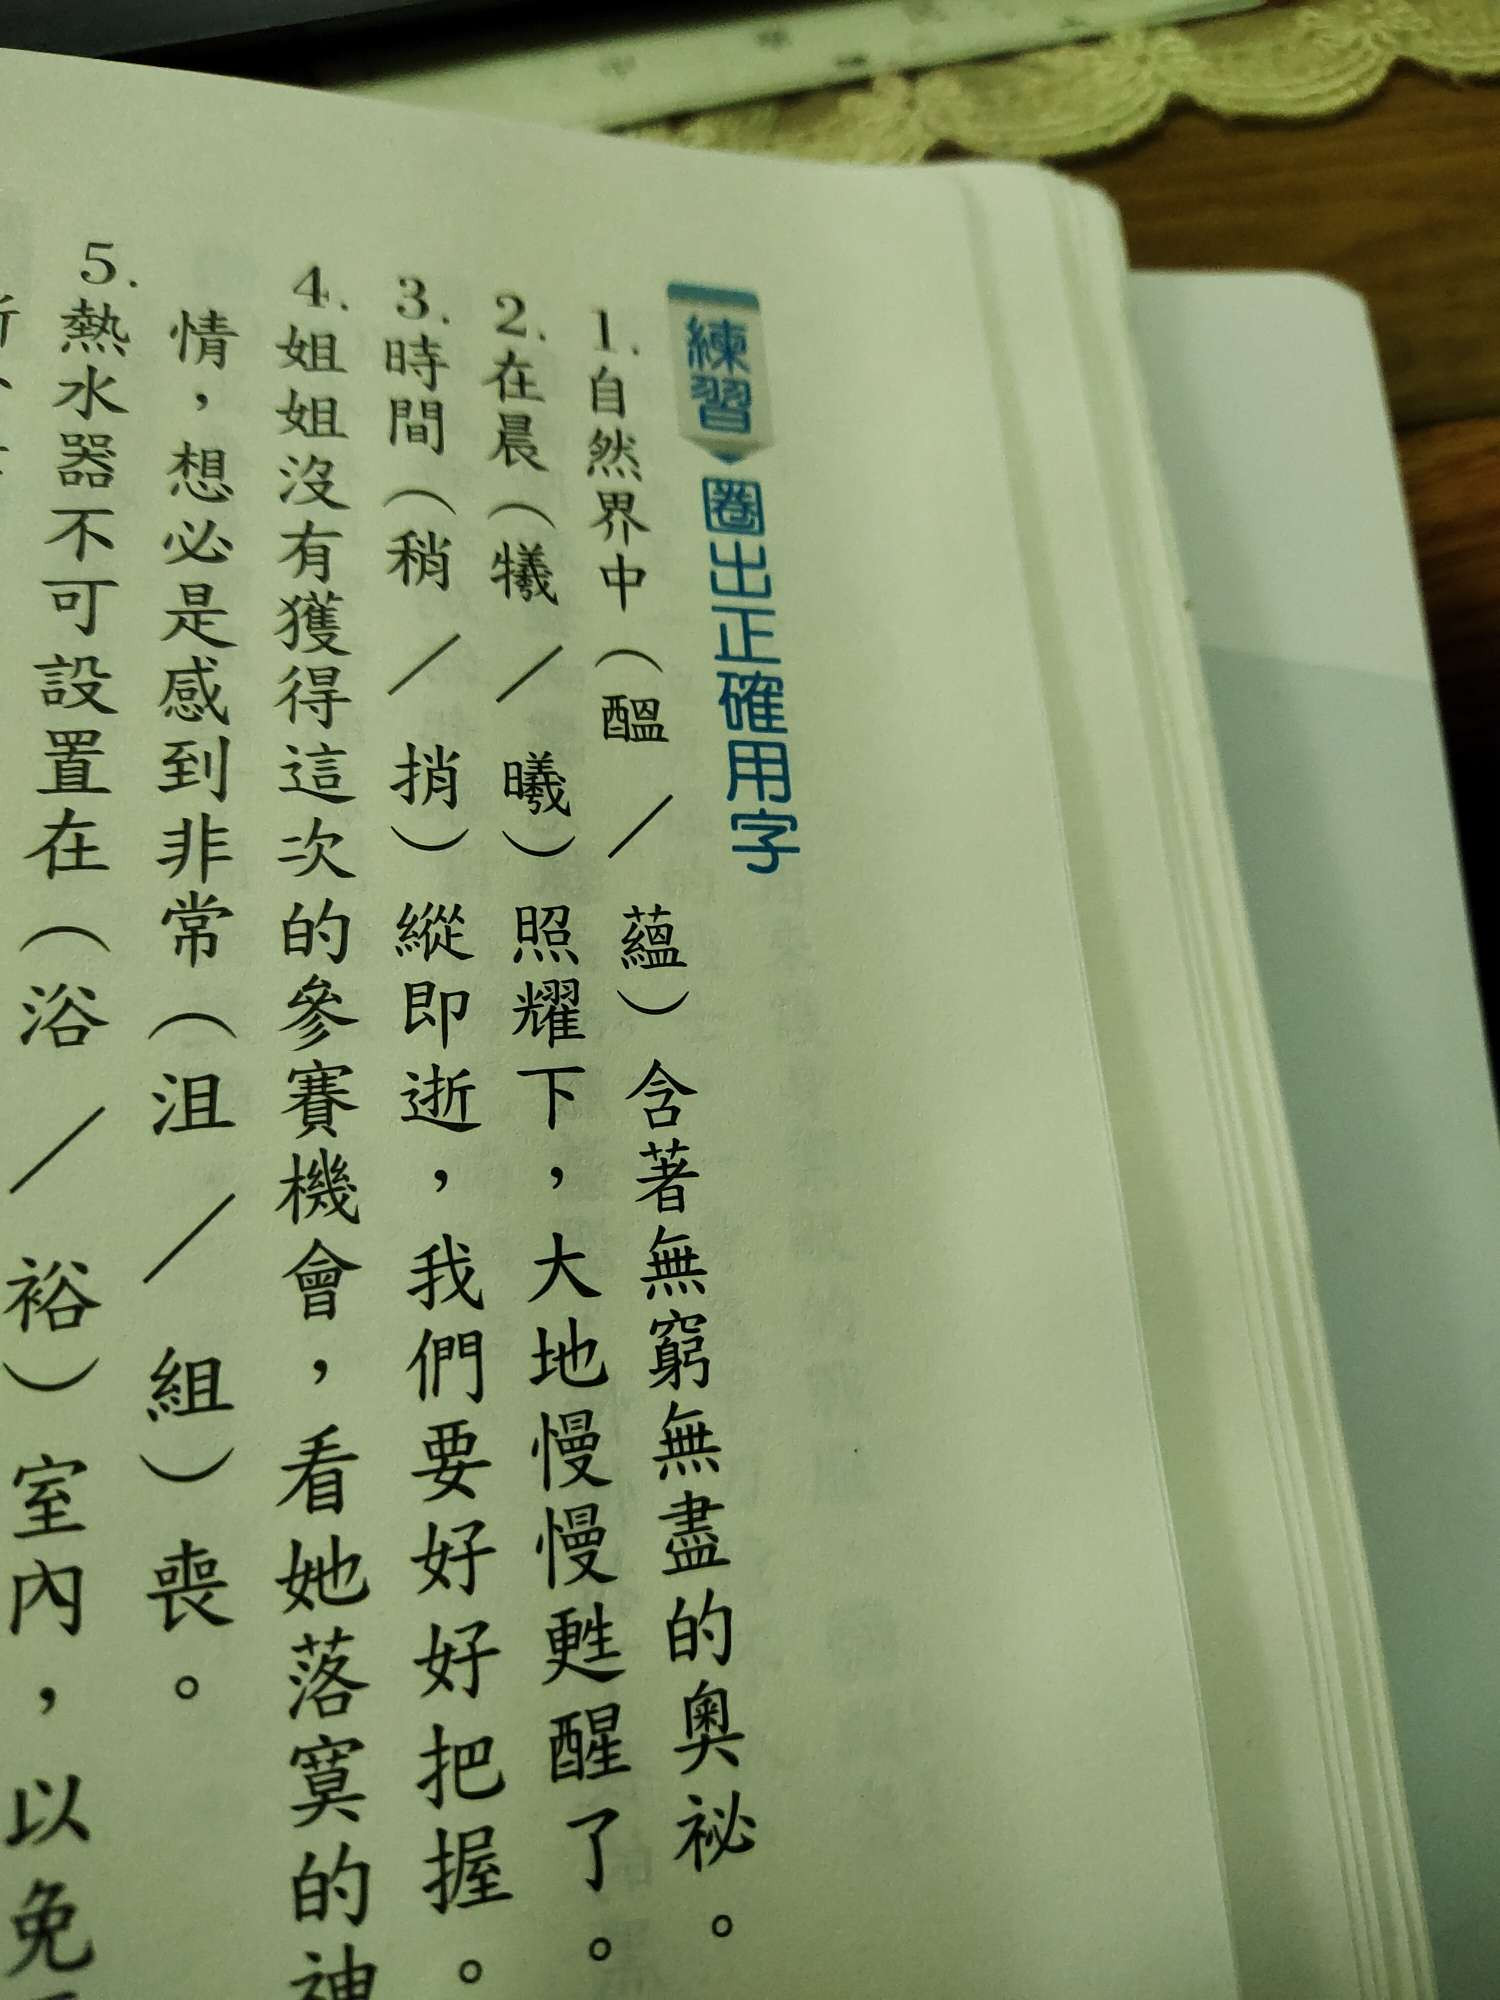 練習 圈出正確用字
1.自然界中（醞／蘊）含著無窮無盡的奧祕。
2.在晨（犧／曦）照耀下，大地慢慢甦醒了。
3.時間（稍／捎）縱即逝，我們要好好把握。
4.姐姐沒有獲得這次的參賽機會，看她落寞的神
情，想必是感到非常（沮／組）喪。
5.熱水器不可設置在（浴／裕）室內，以免